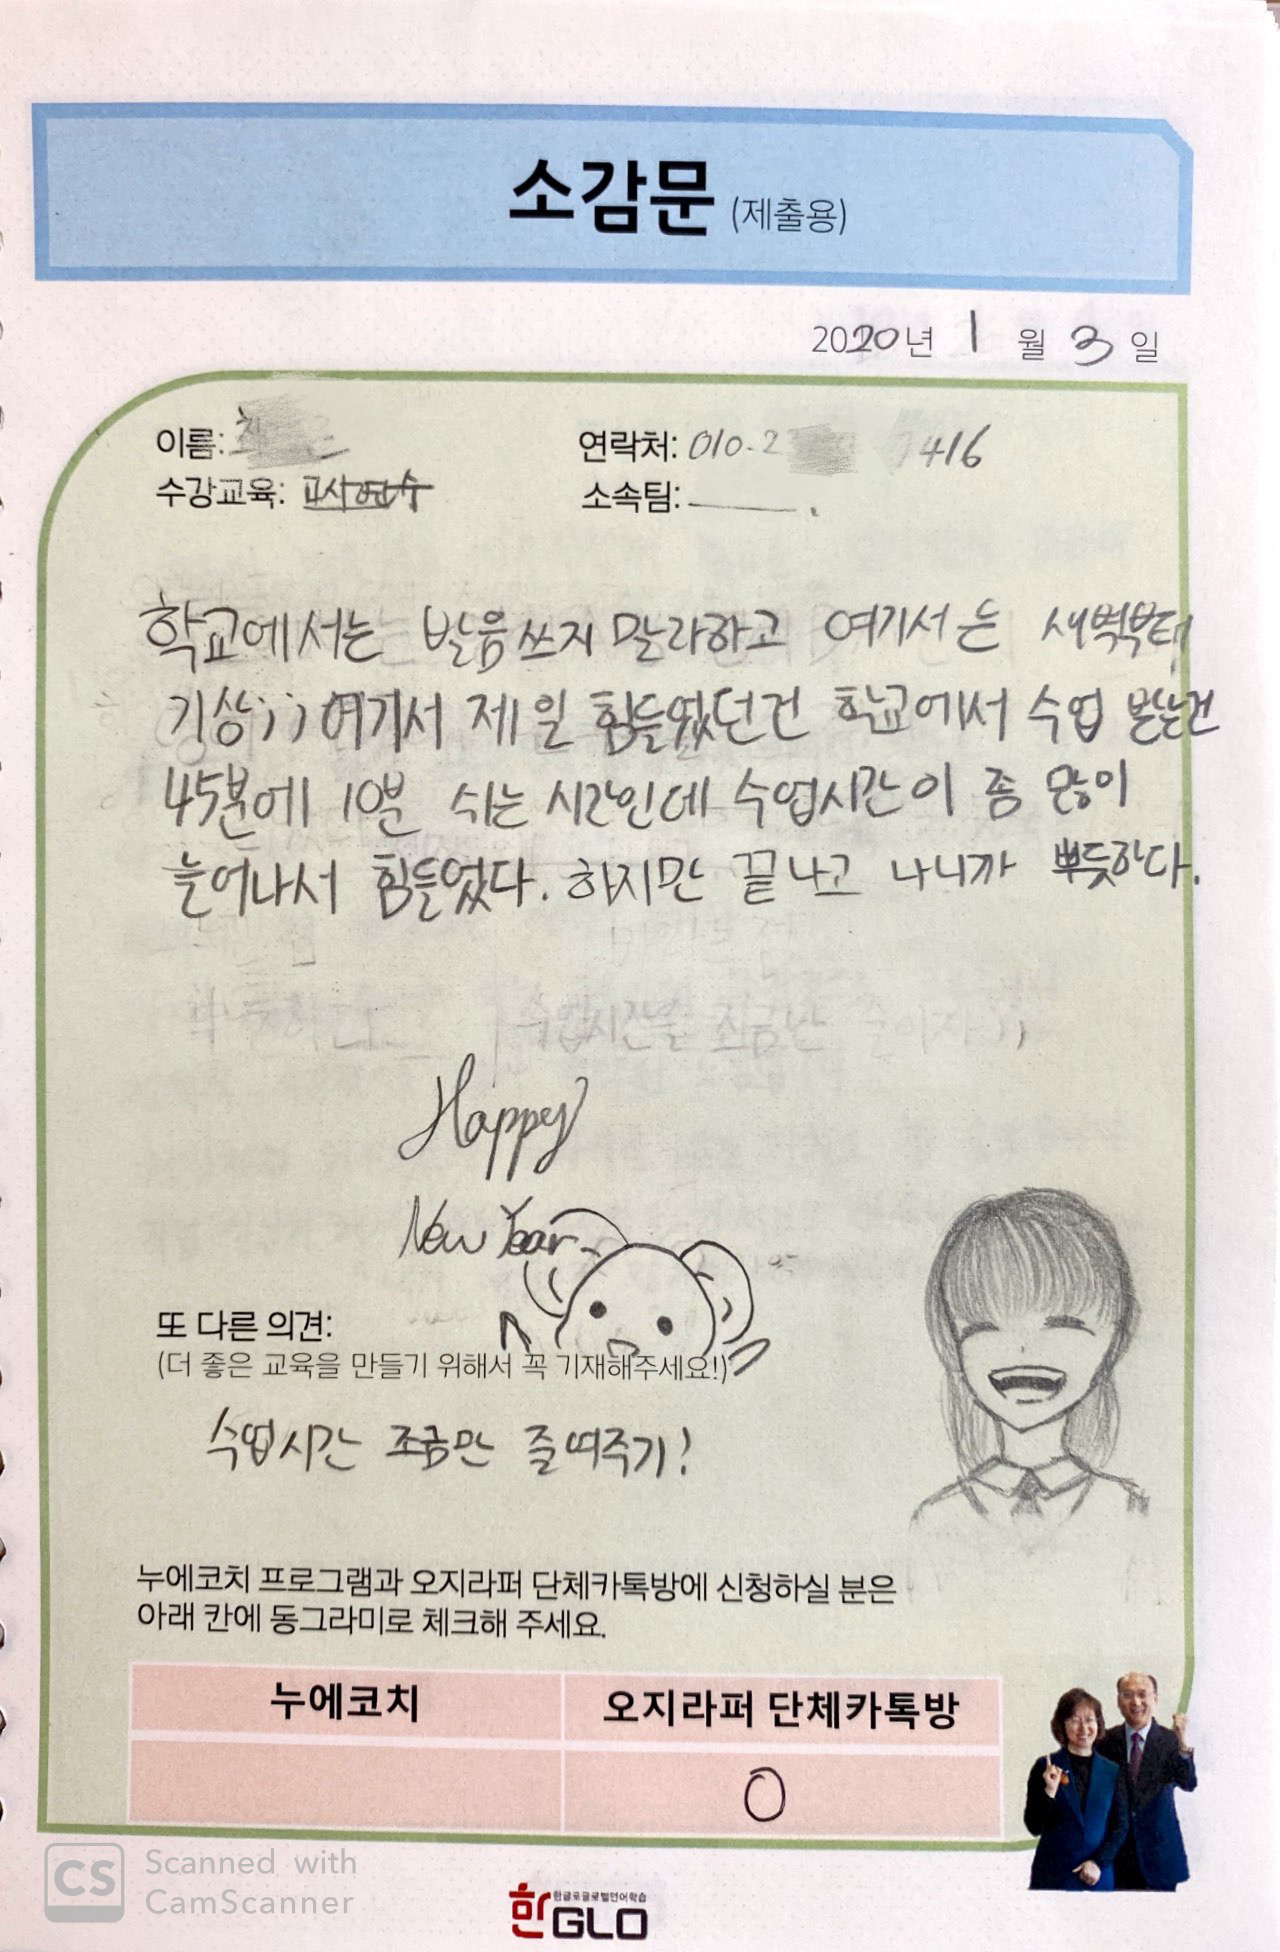 소감문 (제출용)
2020년 1 월 3 일
이름: 연락처: 010-2 416
수강교육: 교사연수 소속팀:
학교에서는 발음쓰지 말라하고 여기서는 새벽부터
기상;; 여기서 제일 힘들었던건 학교에서 수업 받는건
45분에 10분 쉬는 시간인데 수업시간이 좀 많이
늘어나서 힘들었다. 하지만 끝나고 나니까 뿌듯하다.
Happy
New Year
또 다른 의견:
(더 좋은 교육을 만들기 위해서 꼭 기재해주세요!)
수업시간 조금만 줄여주기!
누에코치 프로그램과 오지라퍼 단체카톡방에 신청하실 분은
아래 칸에 동그라미로 체크해 주세요.
누에코치 오지라퍼 단체카톡방
O
CS Scanned with
CamScanner
한글로글로벌언어학습
한GLO